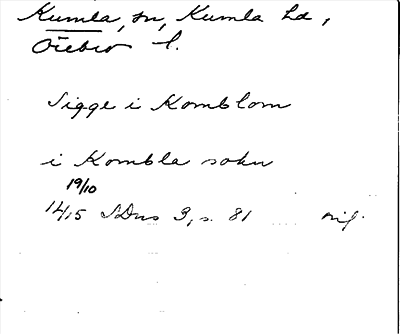 Kumla, sn, Kumla hd,
Örebro l.
Sigge i Komblom
i Kombla sokn
19/10
1415 SDns 3, s. 81 orig.